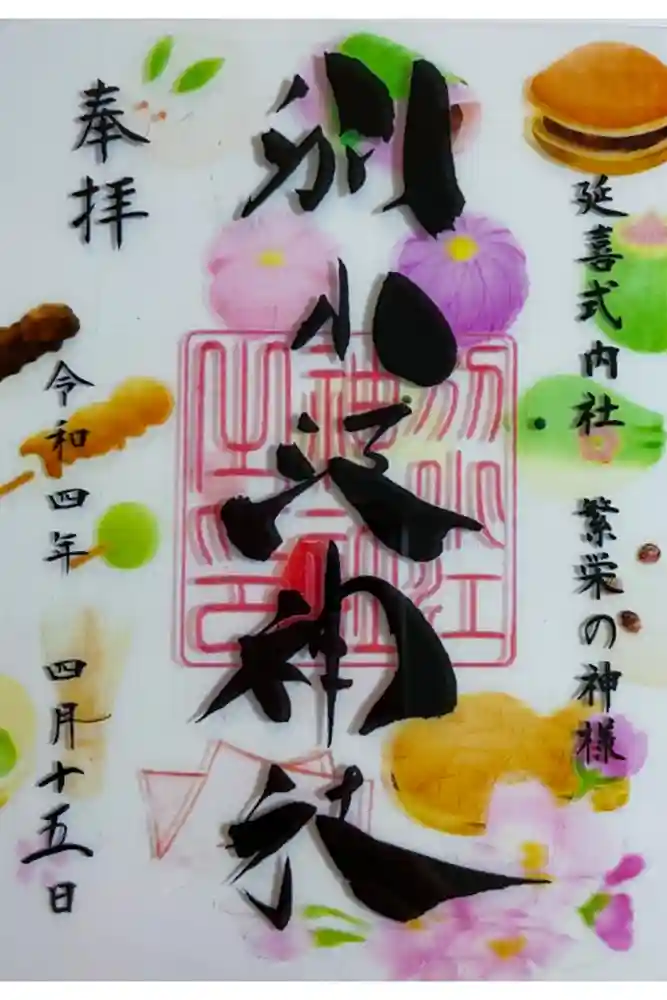 延喜式内社 繁栄の神様
別小江神社
別小江
神社
之印
奉拝
令和四年 四月十五日